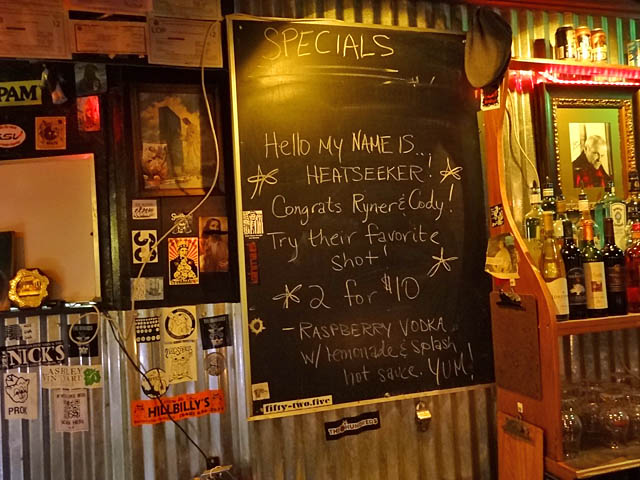 SPECIALS
Hello my NAME IS..
HEATSEEKER!
Congrats Ryner & Cody!
Try their favorite
shot!
2 for $10
- RASPBERRY VODKA
w/ lemonade & splash
hot sauce. YUM!
fifty-two.five
THE HUNDREDS
HILLBILLY'S
NICK'S
PROK